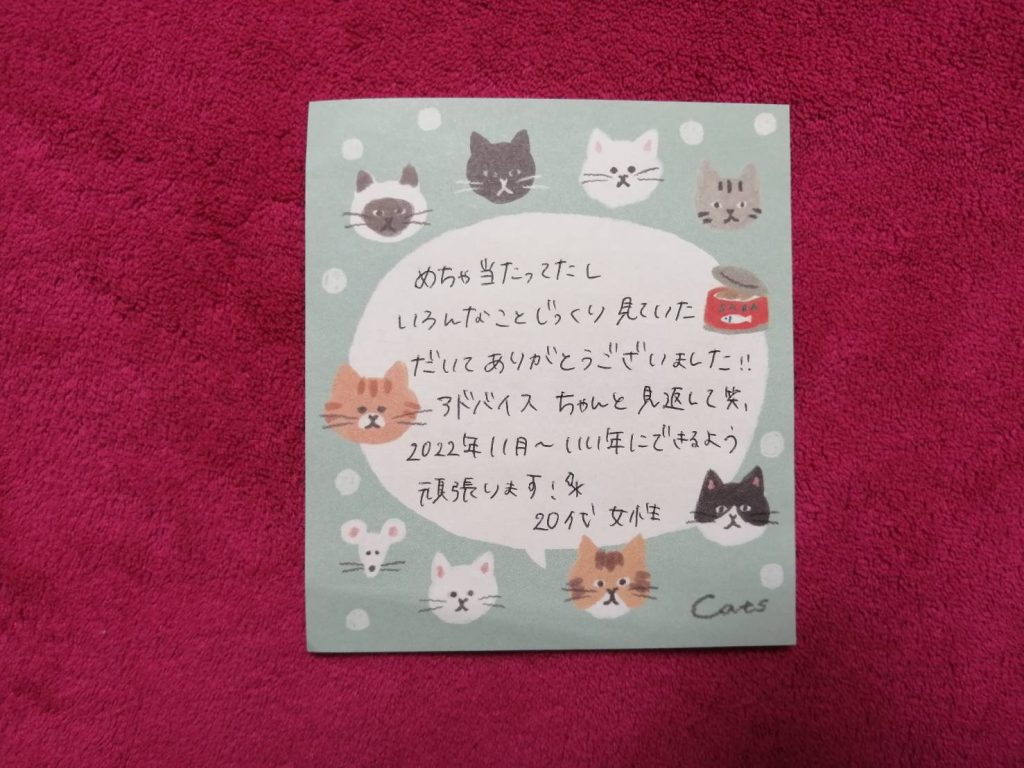 めちゃ当たってたし
いろんなことじっくり見ていた
SABA
だいてありがとうございました!!
アドバイス ちゃんと見返して笑、
2022年11月〜いい年にできるよう
頑張ります!
20代 女性
Cats